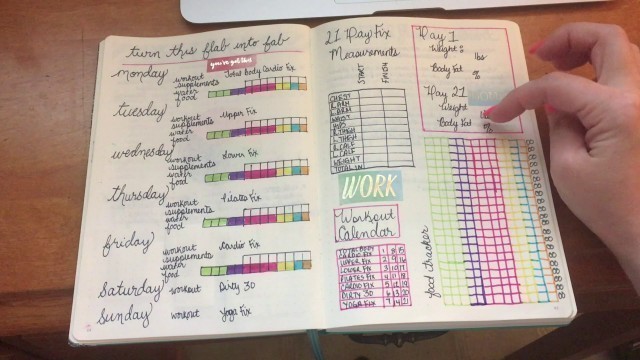 turn this flab into fab
you've got this!
monday
workout Total Body Cardio Fix
supplements
water
food
tuesday
workout Upper Fix
supplements
water
food
wednesday
workout Lower Fix
supplements
water
food
thursday
workout Pilates Fix
supplements
water
food
friday
workout Cardio Fix
supplements
water
food
saturday workout Dirty 30
sunday workout Yoga Fix
21 Day Fix
Measurements
START FINISH
CHEST
R. ARM
L. ARM
WAIST
HIPS
R. THIGH
L. THIGH
R. CALF
L. CALF
WEIGHT
TOTAL IN.
WORK
Workout
Calendar
TOTAL BODY
CARDIO FIX 1 8 15
UPPER FIX 2 9 16
LOWER FIX 3 10 17
PILATES FIX 4 11 18
CARDIO FIX 5 12 19
DIRTY 30 6 13 20
YOGA FIX 7 14 21
Day 1
Weight: lbs
Body Fat %
Day 21
Weight
Body Fat %
food tracker